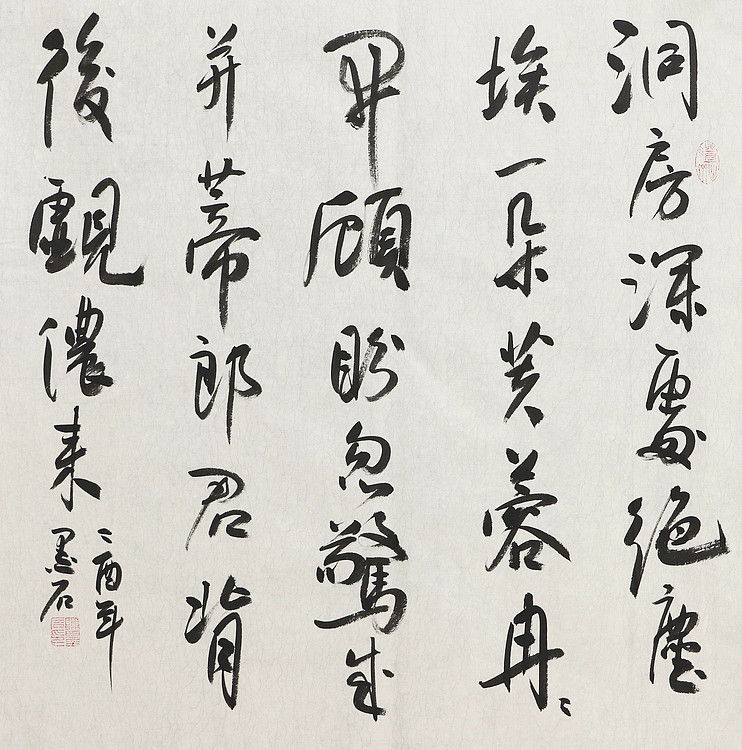 洞房深處絕塵
埃一朵芙蓉冉〻
開顧盼忽驚成
并蒂郎君背
後覷儂来
乙酉年
墨石